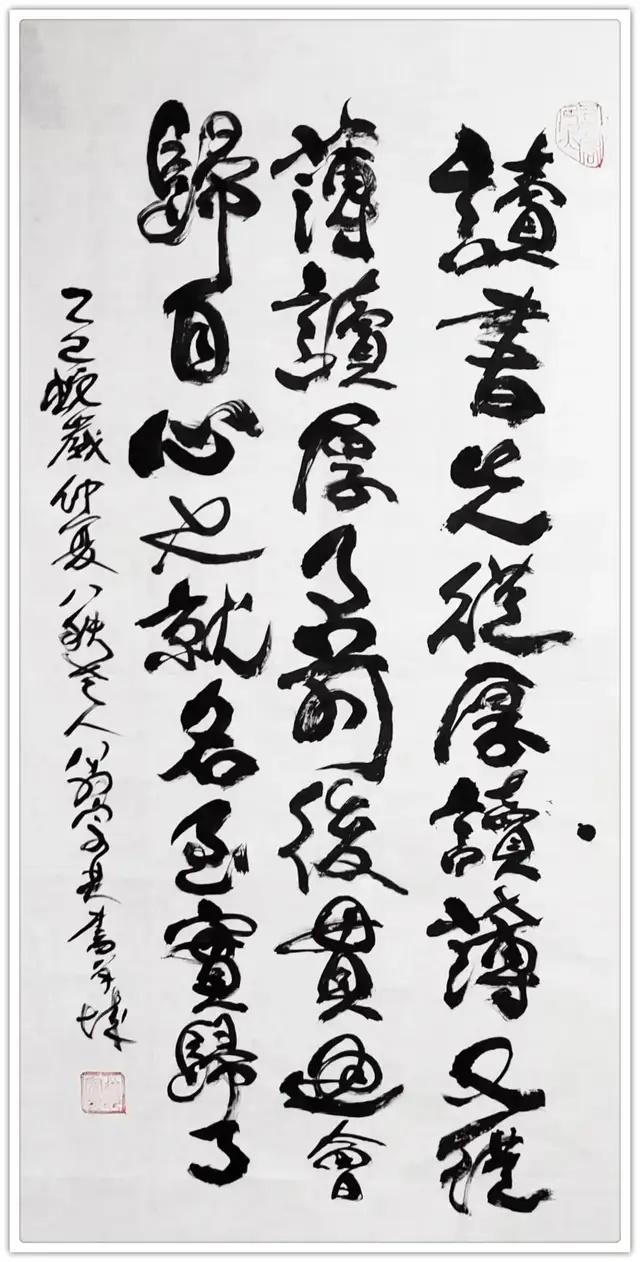 讀書先從厚讀薄又從
薄讀厚了前後貫通會
歸自心也就名至實歸了
乙巳蛇歲仲夏八秩老人翁書於